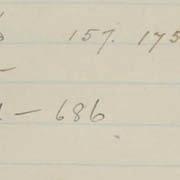 157. 175
— 686